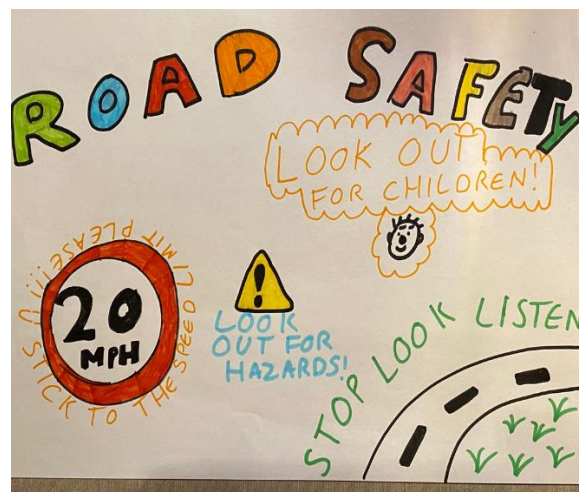 ROAD SAFETY
LOOK OUT
FOR CHILDREN!
STICK TO THE SPEED LIMIT PLEASE!!!!
20
MPH
!
LOOK
OUT FOR
HAZARDS!
STOP LOOK LISTEN